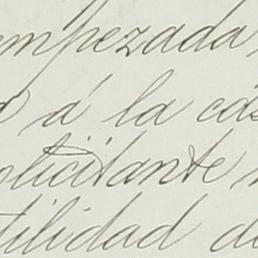 empezada
á la cás
olicitante
tilidad d